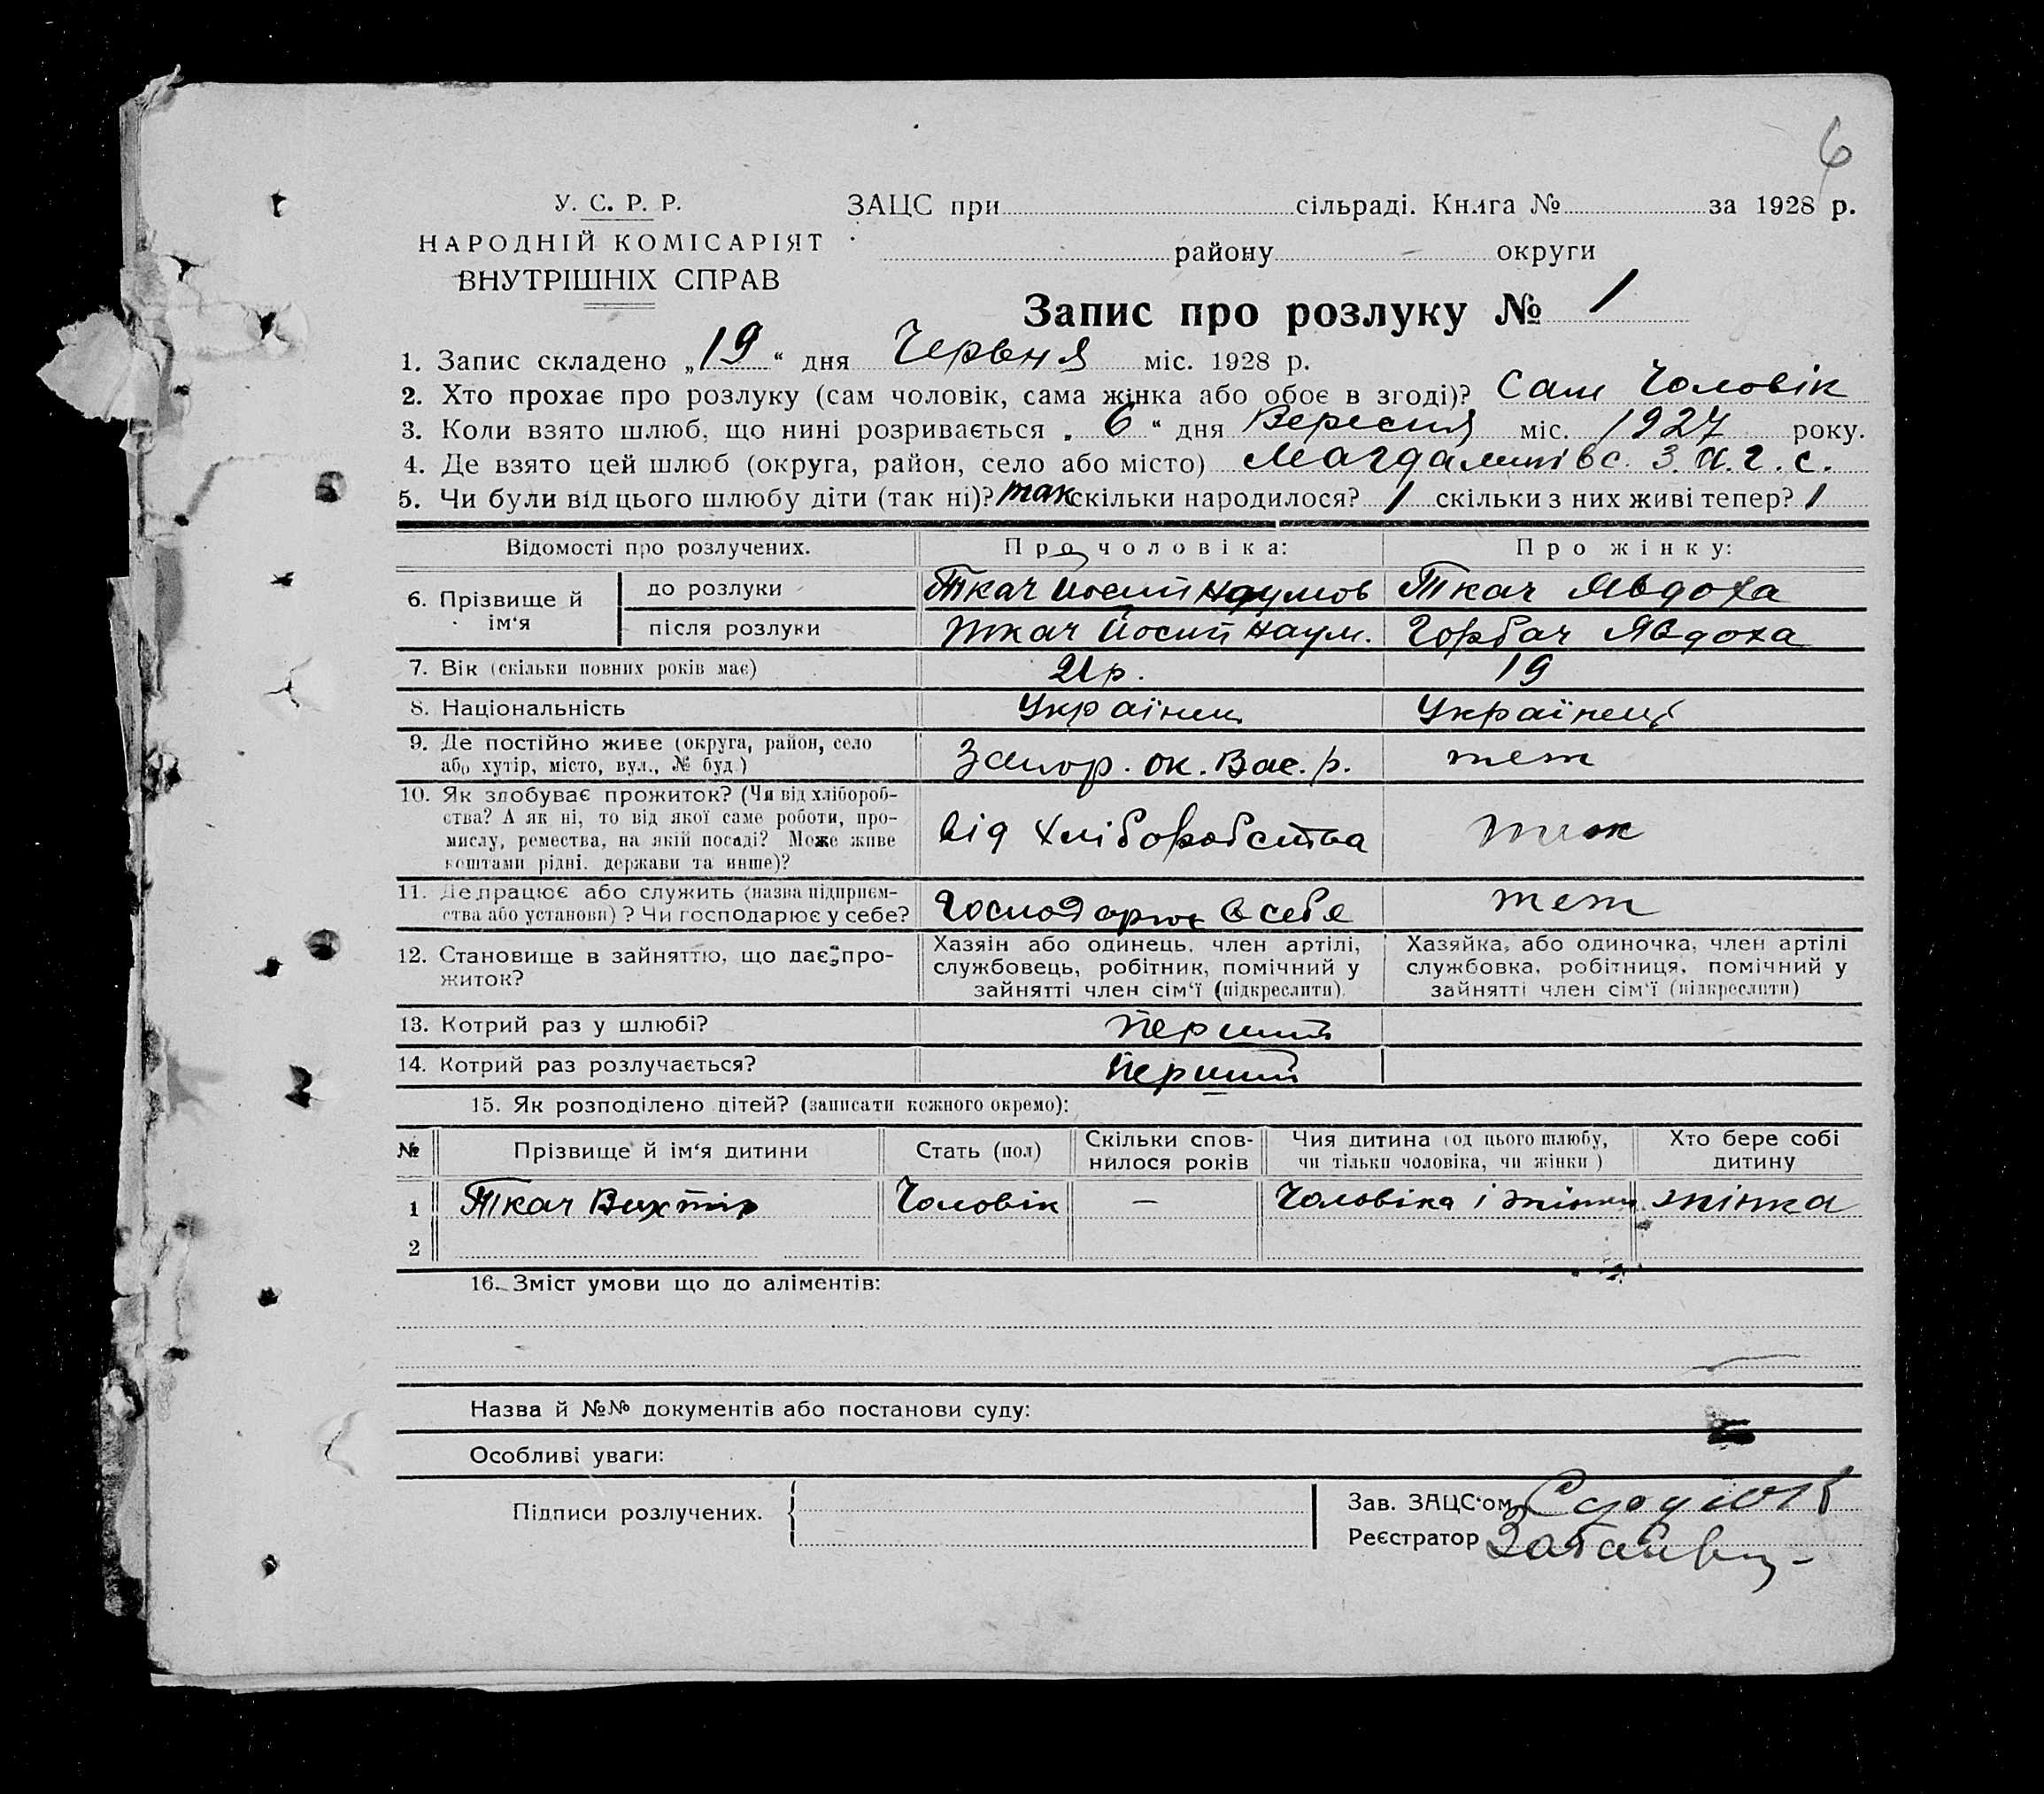 6
У. С. Р. Р.
НАРОДНІЙ КОМІСАРІЯТ
ВНУТРІШНІХ СПРАВ
ЗАЦС при сільраді. Книга № за 1928 р.
району округи
Запис про розлуку № 1
1. Запис складено „19“ дня Червня міс. 1928 р.
2. Хто прохає про розлуку (сам чоловік, сама жінка або обоє в згоді)? Сам Чоловік
3. Коли взято шлюб, що нині розривається „6“ дня Вересня міс. 1927 року.
4. Де взято цей шлюб (округа, район, село або місто) З.А.Г.С.
5. Чи були від цього шлюбу діти (так ні)? так скільки народилося? 1 скільки з них живі тепер? 1
Відомості про розлучених. Про чоловіка: Про жінку:
6. Прізвище й ім‘я
до розлуки Ткач Йосип Наумов Ткач Явдоха
після розлуки Ткач Йосип Наум. Горбач Явдоха
7. Вік (скільки повних років має) 21 р. 19
8. Національність Українец Українец
9. Де постійно живе (округа, район, село
або хутір, місто, вул., № буд.) Запор. ок. Вас. р. теж
10. Як здобуває прожиток? (Чи від хлібороб-
ства? А як ні, то від якої саме роботи, про-
мислу, ремества, на якій посаді? Може живе
коштами рідні, держави та инше)? від хліборобства теж
11. Де працює або служить (назва підприєм-
ства або установи)? Чи господарює у себе? Господарює в себе теж
12. Становище в зайняттю, що дає про-
житок?
Хазяін або одинець, член артілі,
службовець, робітник, помічний у
зайнятті член сім‘ї (підкреслити).
Хазяйка, або одиночка, член артілі
службовка, робітниця, помічний у
зайнятті член сім‘ї (підкреслити)
13. Котрий раз у шлюбі? Перший
14. Котрий раз розлучається? Перший
15. Як розподілено дітей? (записати кожного окремо):
№ Прізвище й ім‘я дитини Стать (пол) Скільки спов-
нилося років Чия дитина (од цього шлюбу,
чи тільки чоловіка, чи жінки) Хто бере собі
дитину
1 Ткач Вихтір Чоловік — Чоловіка і жінки жінка
2
16. Зміст умови що до аліментів:
Назва й №№ документів або постанови суду:
Особливі уваги:
Підписи розлучених.
Зав. ЗАЦС‘ом
Реєстратор